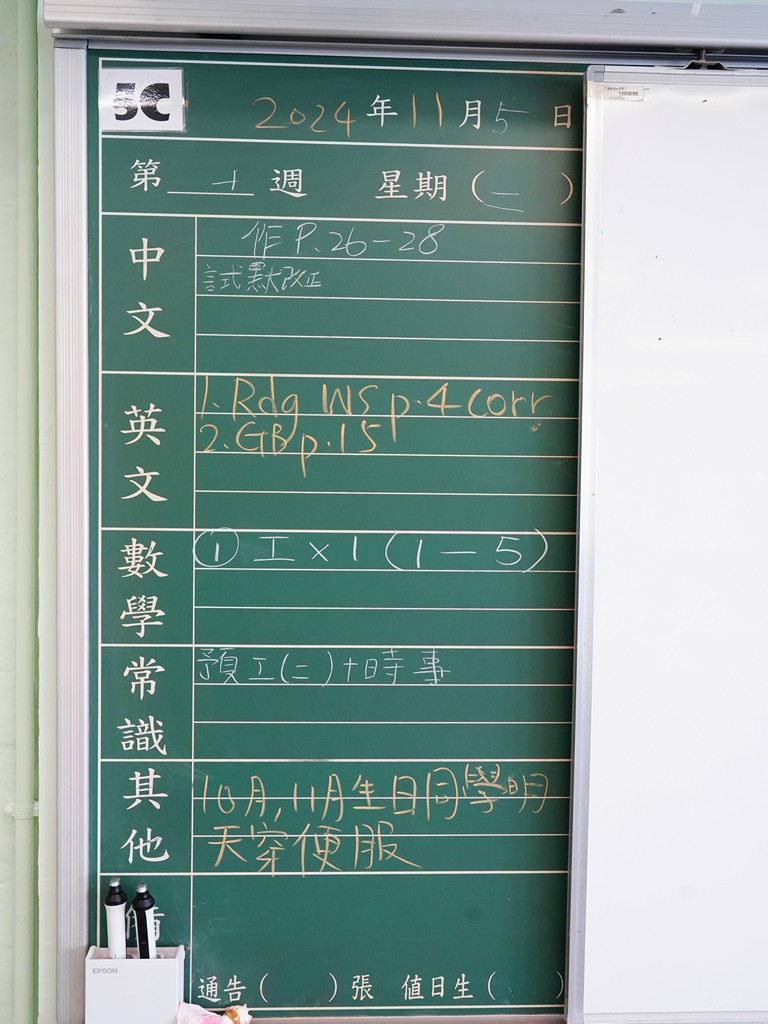 5C
2024年11月5日
第十週 星期(二)
中文
作P.26-28
試默改正
英文
1. Rdg WS p.4 corr.
2. GB p.15
數學
① 工×1(1-5)
常識
預工(二)+時事
其他
10月,11月生日同學明
天穿便服
備
EPSON
通告( )張 值日生( )